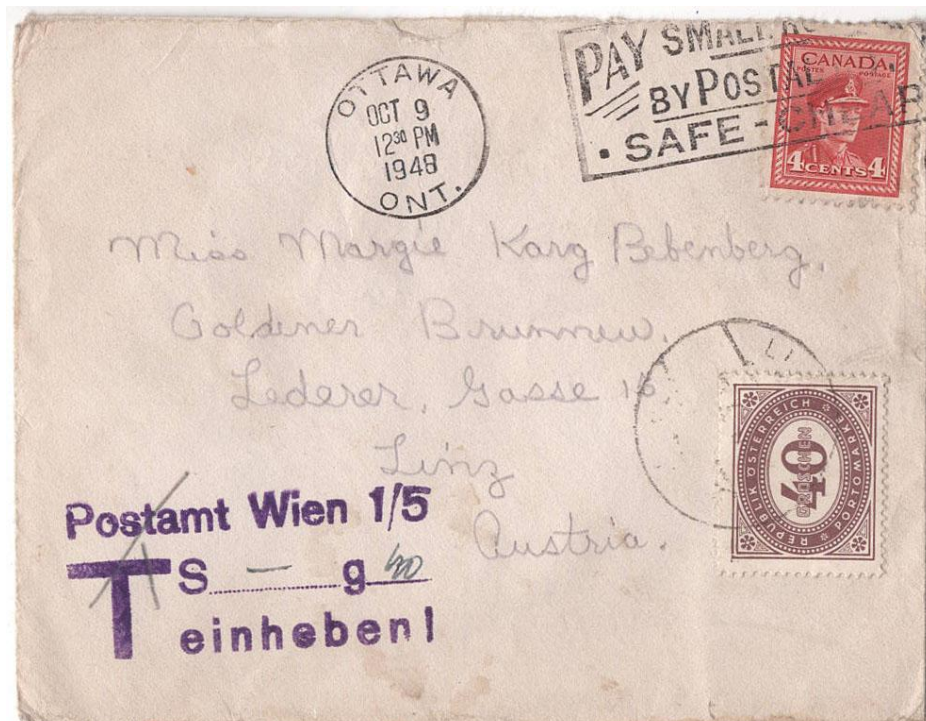 OTTAWA
OCT 9
12³⁰ PM
1948
ONT.
PAY SMALL
BY POSTAL
SAFE - CHEAP
CANADA
POSTES POSTAGE
4 CENTS 4
Miss Margie Karg Bebenberg,
Goldener Brunnew,
Lederer, Gasse 16,
Linz
Austria.
LI
REPUBLIK ÖSTERREICH
PORTOMARKE
40
GROSCHEN
Postamt Wien 1/5
T S — g 40
einheben!